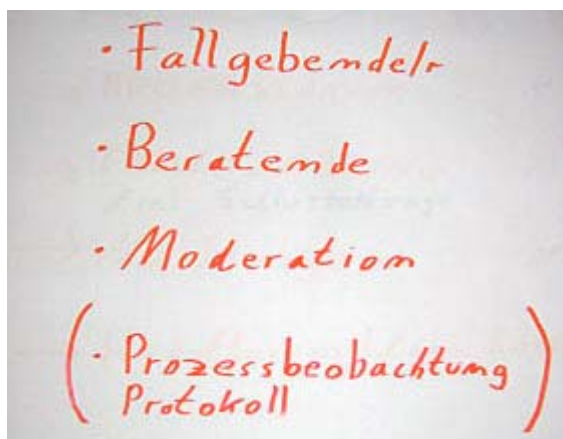 · Fallgebende/r
· Beratende
· Moderation
(· Prozessbeobachtung
Protokoll)